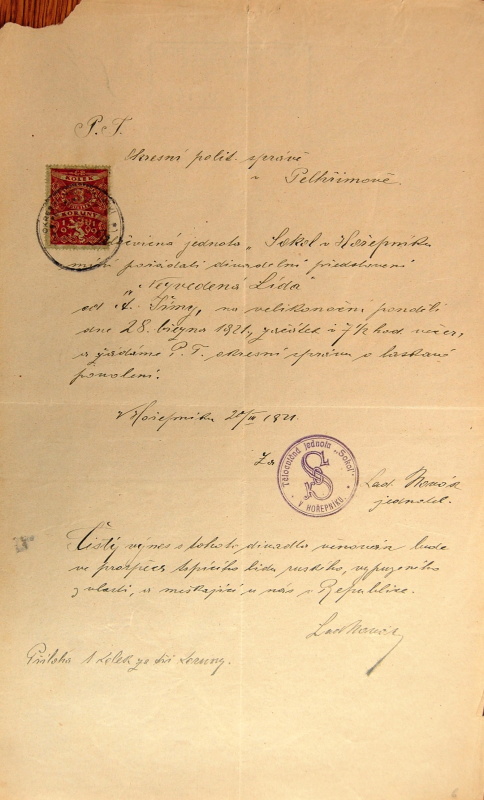 P. T.
Okresní polit. správě
v Pelhřimově.
KOLEK
3
KORUNY
1919
Tělocvičná jednota „Sokol v Hořepníku
míní pořádati divadelní představení
„Nezvedená Lída"
od A. Šímy, na velikonoční pondělí
dne 28. března 1921, začátek v 7 1/2 hod. večer,
a žádáme P. T. okresní správu o laskavé
povolení.
V Hořepníku 20/III 1921.
Za
Tělocvičná jednota „Sokol"
V HOŘEPNÍKU.
Lad. Novák
jednatel.
Čistý výnes s tohoto divadla věnován bude
ve prospěch lidu ruského, vypuzeného
z vlasti, a meškající u nás v Republice.
Lad Novák
Příloha 1 kolek za tři koruny.